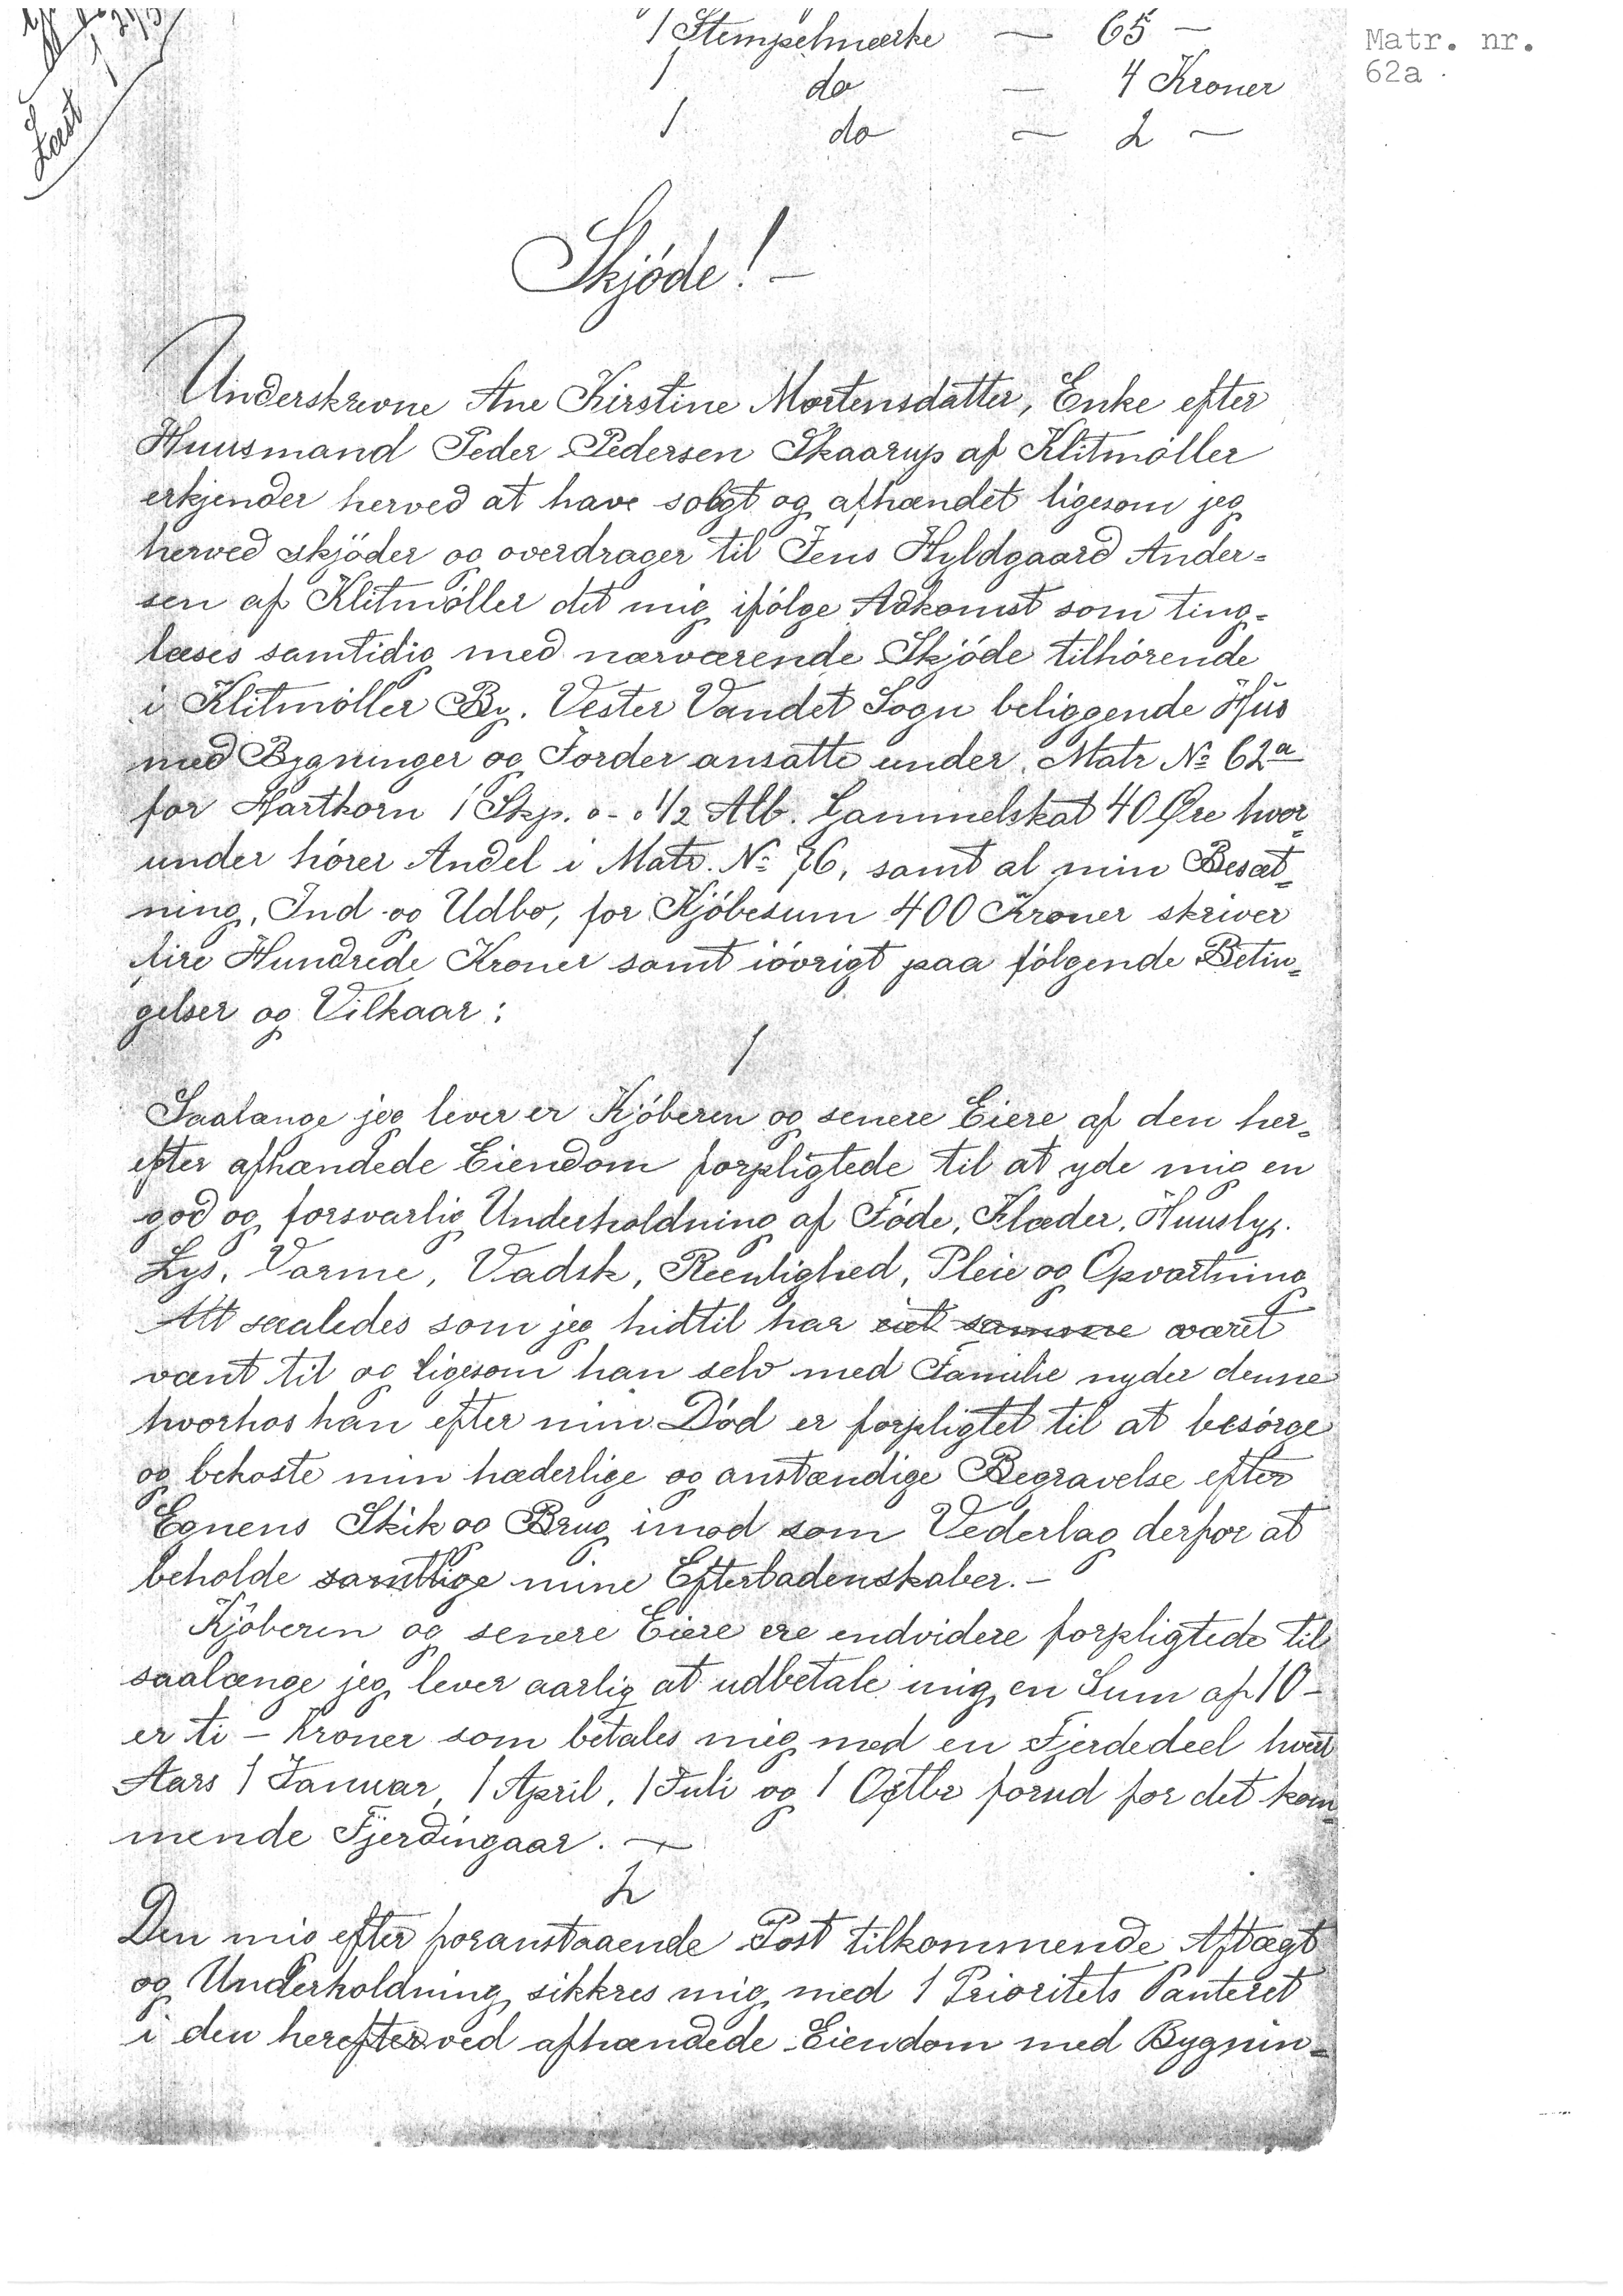 1 Stempelmærke — 65 —
1 do — 4 Kroner
1 do — 2 —
Matr. nr.
62a
Læst
Skjöde! —
Underskrevne Ane Kirstine Mortensdatter, Enke efter
Huusmand Peder Pedersen Skaarup af Klitmøller
erkjender herved at have solgt og afhændet ligesom jeg
herved skjöder og overdrager til Jens Hyldgaard Ander=
sen af Klitmöller det mig ifölge Adkomst som ting=
læses samtidig med nærværende Skjöde tilhörende
i Klitmöller By. Vester Vandet Sogn beliggende Hus
med Bygninger og Jorder ansatte under Matr № 62a
for Hartkorn 1 Skp. 0 - 0 1/2 Alb. Gammelskat 40 Øre hvor=
under hörer Andel i Matr. № 76, samt al min Besæt=
ning, Ind og Udbo, for Kjöbesum 400 Kroner skriver
fire Hundrede Kroner samt iövrigt paa fölgende Betin=
gelser og Vilkaar:
1
Saalænge jeg lever er Kjöberen og senere Eiere af den her=
efter afhændede Eiendom forpligtede til at yde mig en
god og forsvarlig Underholdning af Föde, Klæder, Huusly,
Lys, Varme, Vadsk, Reenlighed, Pleie og Opvartning
Alt saaledes som jeg hidtil har samme været
vant til og ligesom han selv med Familie nyder denne
hvorhos han efter min Död er forpligtet til at besörge
og bekoste min hæderlige og anstændige Begravelse efter
Egnens Skik og Brug imod som Vederlag derfor at
beholde samtlige mine Efterladenskaber. —
Kjöberen og senere Eiere ere endvidere forpligtede til
saalænge jeg lever aarlig at udbetale mig en Sum af 10 —
er ti — Kroner som betales mig med en Fjerdedeel hvert
Aars 1 Januar, 1 April, 1 Juli og 1 Octbr forud for det kom=
mende Fjerdingaar. —
2
Den mig efter foranstaaende Post tilkommende Aftægt
og Underholdning sikkres mig med 1 Prioritets Panteret
i den herefterved afhændede Eiendom med Bygnin=